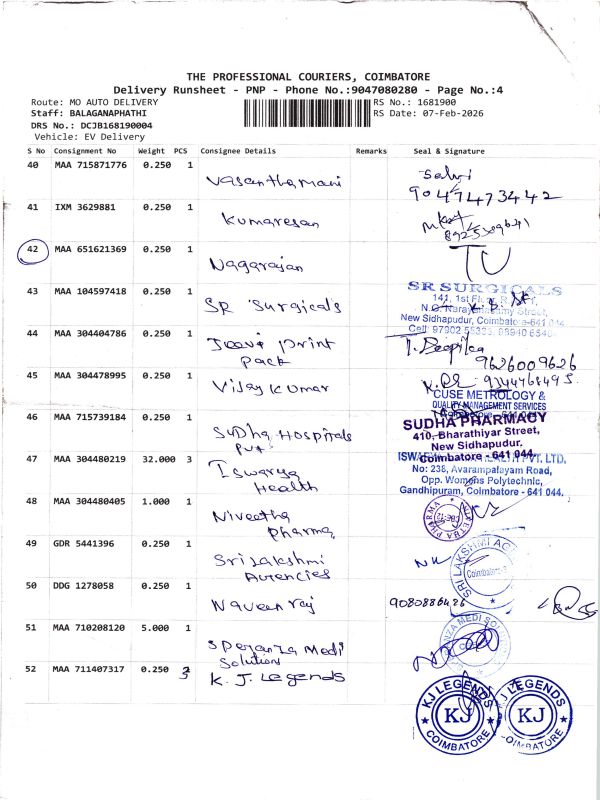 THE PROFESSIONAL COURIERS, COIMBATORE
Delivery Runsheet - PNP - Phone No.:9047080280 - Page No.:4
Route: MO AUTO DELIVERY
RS No.: 1681900
Staff: BALAGANAPHATHI
RS Date: 07-Feb-2026
DRS No.: DCJB168190004
Vehicle: EV Delivery
S No Consignment No Weight PCS Consignee Details Remarks Seal & Signature
40 MAA 715871776 0.250 1 Vasanthamani
9047473442
41 IXM 3629881 0.250 1 Kumaresan
42 MAA 651621369 0.250 1 Nagarajan
43 MAA 104597418 0.250 1 SR Surgicals
SR SURGICALS
New Sidhapudur, Coimbatore-641 044
44 MAA 304404786 0.250 1 print pack
T. Deepika
9626009626
45 MAA 304478995 0.250 1 Vijay Kumar
CUSE METROLOGY &
QUALITY MANAGEMENT SERVICES
46 MAA 715739184 0.250 1 Sudha Hospitals
SUDHA PHARMACY
410, Bharathiyar Street,
New Sidhapudur.
Coimbatore - 641 044.
47 MAA 304480219 32.000 3 Iswarya Health
PVT. LTD.
No: 238, Avarampalayam Road,
Opp. Womens Polytechnic,
Gandhipuram, Coimbatore - 641 044.
48 MAA 304480405 1.000 1 Niveetha Pharma
49 GDR 5441396 0.250 1 Sri Lakshmi
SRI LAKSHMI
50 DDG 1278058 0.250 1 Naveen raj
9080886426
51 MAA 710208120 5.000 1 Speranza Medi Solutions
52 MAA 711407317 0.250 K. J. Legends
KJ LEGENDS
KJ
COIMBATORE
KJ LEGENDS
KJ
COIMBATORE